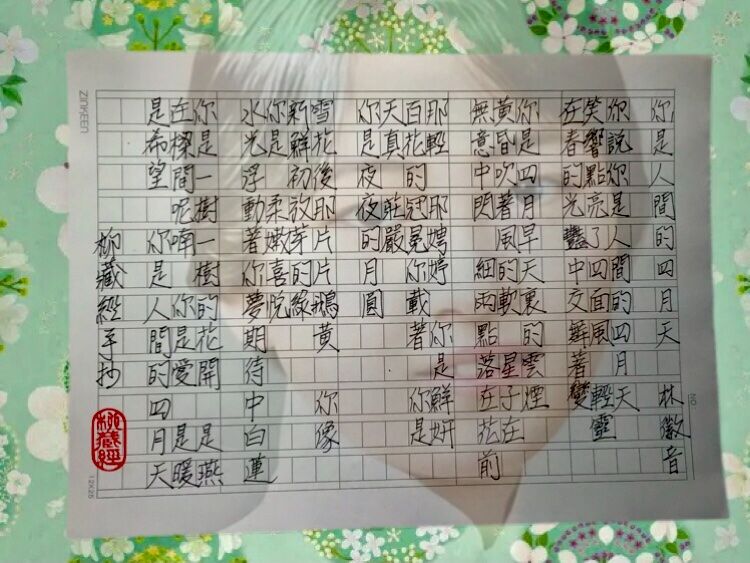 你是人間的四月天 林徽音
你說你是人間的四月天
笑響點亮了四面風 輕靈
在春的光豔中交舞著變
你是四月早天裏的雲煙
黃昏吹著風的軟 星子在
無意中閃 細雨點落在花前
那輕 那娉婷 你是鮮妍
百花的冠冕你戴著 你是
天真 莊嚴
你是夜夜的月圓
雪花後那片片鵝黃 你像
新鮮初放芽的綠
你是 柔嫩喜悅
水光浮動著你夢期待中白蓮
你是一樹一樹的花開 是燕
在樑間呢喃 你是愛 是暖
是希望 你是人間的四月天
柳藏經手抄
柳藏經
ZINKEEN
12X25